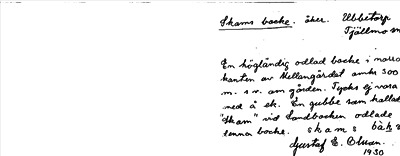 Skams backe. åker. Ubbetorp
Tjällmo sn
En högländig odlad backe i norra
kanten av Mellangärdet omkr 300
m. s v. om gården. Tycks ej vara
ned å ek. En gubbe som kallad
"Skam" vid Sandbacken odlade
denna backe. skams bàk
Gustaf E. Olsson.
1930